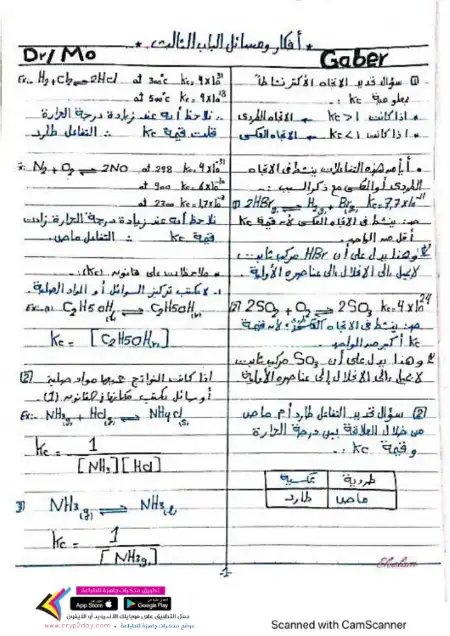 * أفكار ومسائل الباب الثالث *
Dr/Mo
Gaber
(1) سؤال تحديد الاتجاه الأكثر نشاطًا
بمعلومية Kc :.
* إذا كانت Kc >1 ← الاتجاه الطردى
* إذا كانت Kc <1 ← الاتجاه العكسى
* أيًا من هذه التفاعلات ينشط فى الاتجاه
الطردى أو العكسى مع ذكر السبب :.
(1) 2HBr(g) ⇌ H2(g) + Br2(g) Kc= 7,7x10
ينشط فى الاتجاه العكسى لأن قيمة Kc
أقل من الواحد.
وهذا يدل على أن HBr مركب ثابت
لا يميل إلى الانحلال إلى عناصره الأولية
(2) 2SO2 + O2 ⇌ 2SO3 Kc= 4x10^24
ينشط فى الاتجاه لأن قيمة
Kc أكبر من الواحد
وهذا يدل على أن SO3 مركب ثابت
لا يميل إلى الانحلال إلى عناصره الأولية
(2) سؤال تحديد التفاعل طارد أم ماص
من خلال العلاقة بين درجة الحرارة
وقيمة Kc :.
طردية عكسية
ماص طارد
Ex:- H2 + Cl2 ⇌ 2HCl at 300°c Kc= 4x10^31
at 500°c Kc= 4x10^18
نلاحظ أنه عند زيادة درجة الحرارة
قلت قيمة Kc ∴ التفاعل طارد
N2 + O2 ⇌ 2NO at 298 Kc= 4x10^-31
at 900
at 2300
نلاحظ أنه عند زيادة درجة الحرارة زادت
قيمة Kc ∴ التفاعل ماص
* ملاحظات على قانون (Kc) :.
1- لا يكتب تركيز السوائل أو المواد الصلبة.
C2H5OH(l) ⇌ C2H5OH(v)
Kc = [C2H5OH(v)]
(2) إذا كانت النواتج جميعها مواد صلبة
أو سوائل يكتب مكانها فى القانون (1).
Ex:- NH3(g) + HCl(g) ⇌ NH4Cl(s)
Kc = 1
[NH3][HCl]
3) NH3(g) ⇌ NH3(l)
Kc = 1
[NH3(g)]
تطبيق مذكرات جاهزة للطباعة
App Store
Google Play
حمل التطبيق على موبايلك الأندرويد أو الآيفون
موقع مذكرات جاهزة للطباعة • www.cryp2day.com
Scanned with CamScanner